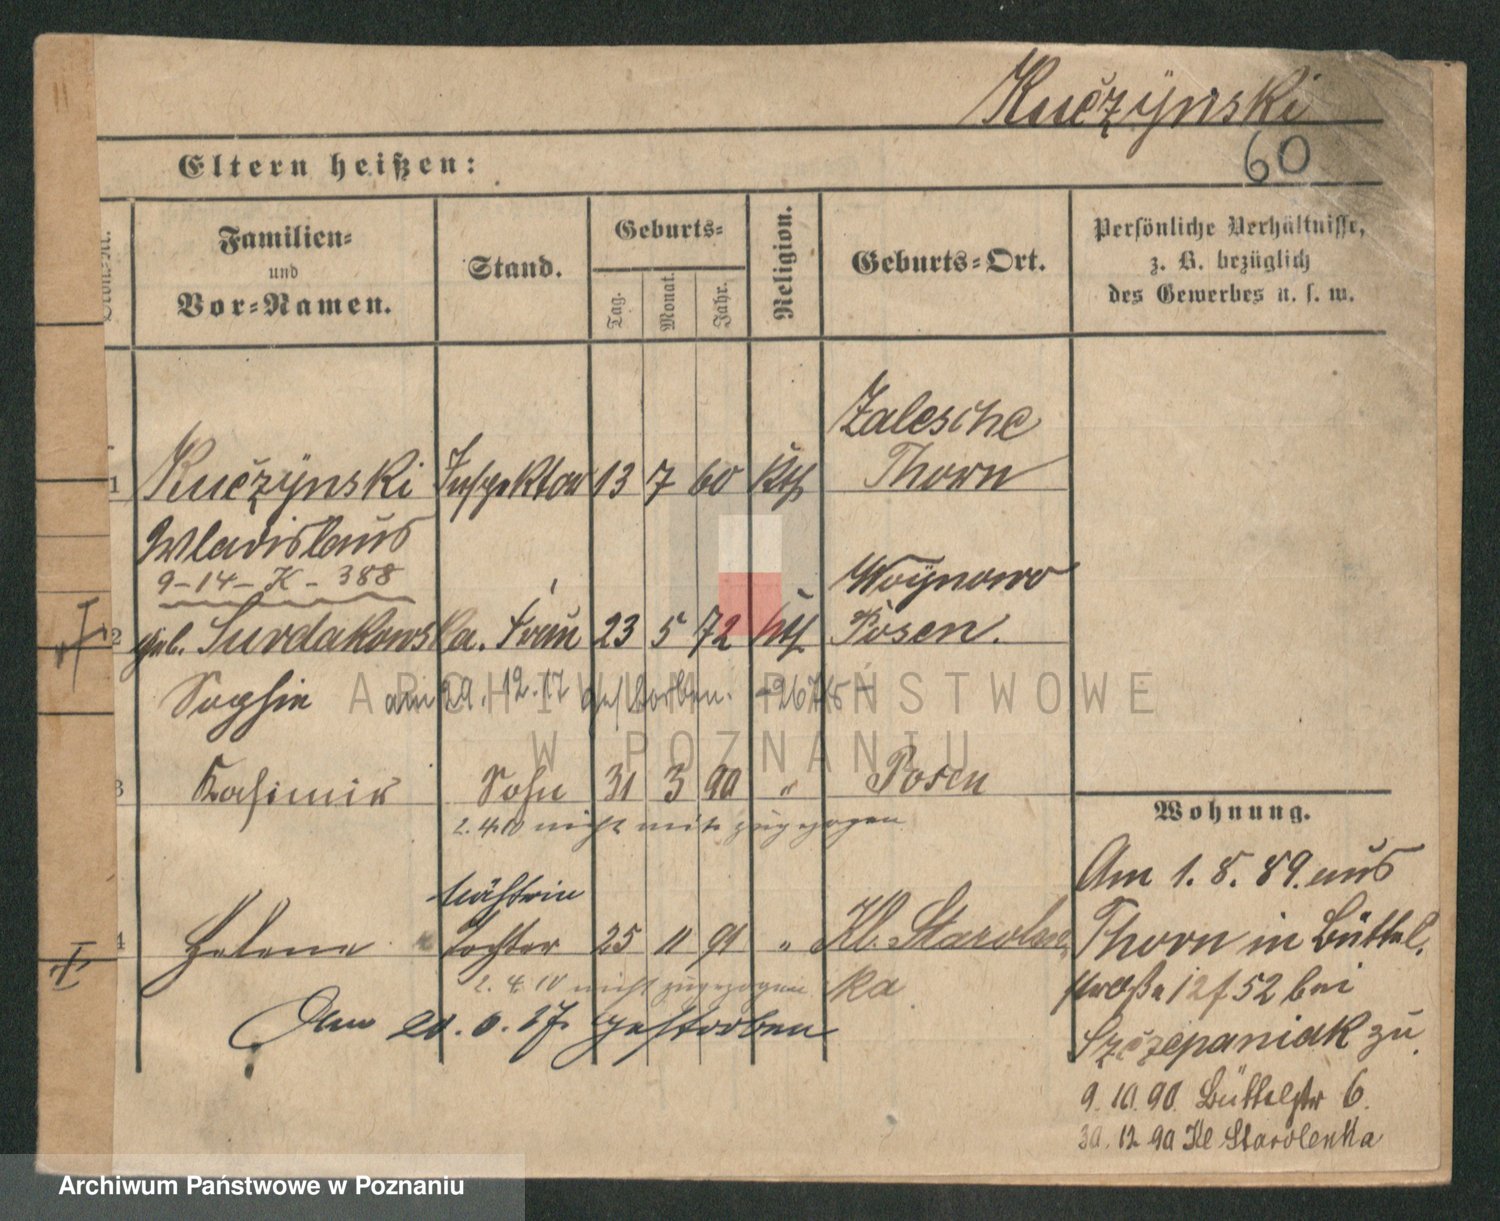 Kučzÿnski
60
Eltern heißen:
Ordn.-Nr.
Familien-
und
Vor-Namen.
Stand.
Geburts-
Tag.
Monat.
Jahr.
Religion.
Geburts-Ort.
Persönliche Verhältnisse,
z. B. bezüglich
des Gewerbes u. s. w.
Zalesche
1 Kučzÿnski Inspektor 13 7 60 kth Thorn
Wladislaus
9-14-K-388
Woÿnowo
2 geb. Surdakowska. Frau 23 5 72 kth Posen.
Sophie am 29. 12. 17 gestorben.
3 Kasimir Sohn 31 3 90 " Posen
2.4.10 nicht mit zugezogen
Nähterin
4 Helene Tochter 25 11 91 " Kl. Starolen
2.4.10 nicht zugezogen ka
Am 20. 6. 27. gestorben
Wohnung.
Am 1. 8. 89. aus
Thorn in Büttel,
straße 12/52 bei
Szczepaniak zu.
9. 10. 90. Büttelstr 6.
30. 12. 90 Kl Starolenka
ARCHIWUM PAŃSTWOWE
W POZNANIU
Archiwum Państwowe w Poznaniu